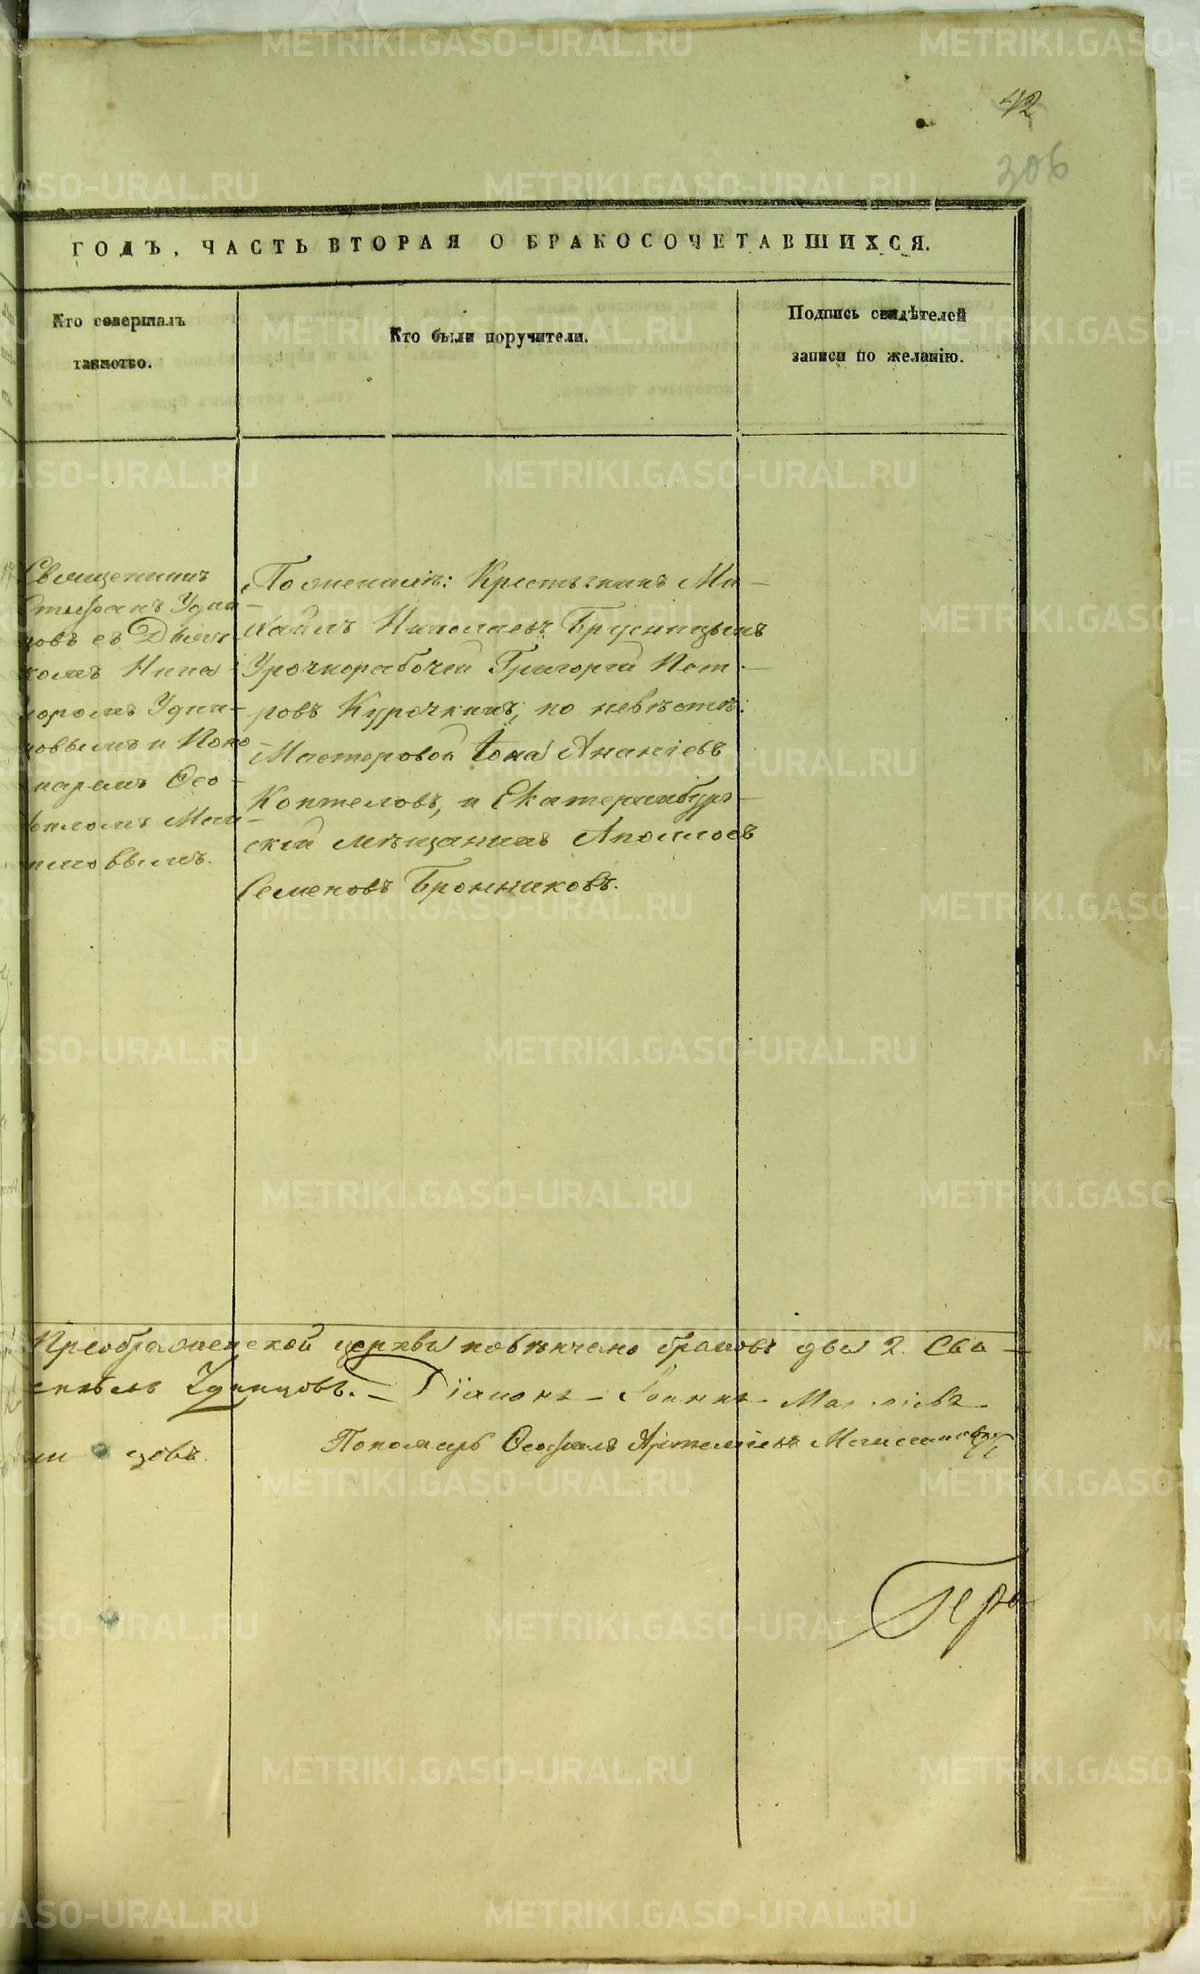 42
306
ГОДЪ, ЧАСТЬ ВТОРАЯ О БРАКОСОЧЕТАВШИХСЯ.
Кто совершалъ
таинство.
Кто были поручители.
Подпись свидѣтелей
записи по желанію.
Священникъ
Стефанъ Удин
цовъ съ Дьяч
комъ
Удин-
цовымъ и Поно
маремъ Ѳео
филомъ
По женихѣ: Крестьянинъ Ми-
хаилъ Николаевъ Брусницынъ
Урочнорабочій Григорій Пет-
ровъ Курочкинъ, по невѣстѣ:
Мастеровой Іона Ананіевъ
Коптеловъ, и Екатеринбург-
скій мѣщанинъ Аполлосъ
Семеновъ Бронниковъ.
Преображенской церкви повѣнчано браковъ два 2. Свя-
Удинцовъ. - Діаконъ
Пономарь Ѳеофилъ Артемьевъ
METRIKI.GASO-URAL.RU